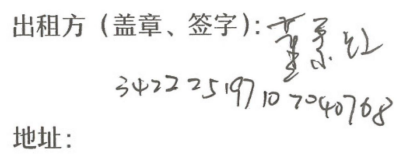 出租方（盖章、签字）：董景红
342225197107040768
地址：